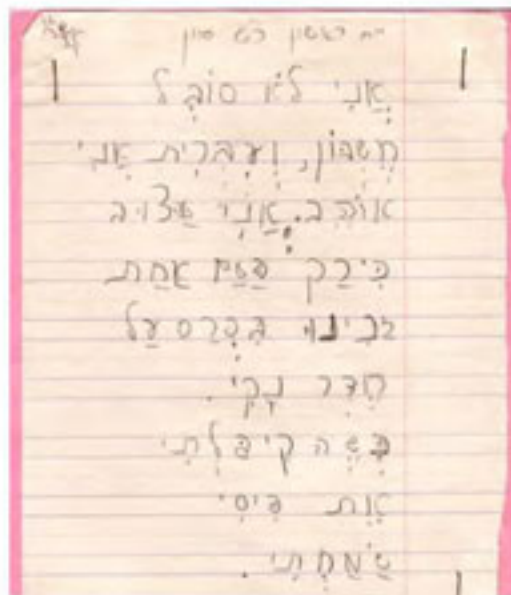 יום ראשון ג' סיון
אֲנִי לֹא סוֹבֵל
חֶשְׁבּוֹן, וְעִבְרִית אֲנִי
אוֹהֵב. אֲנִי עָצוּב
כִּי רַק פַּעַם אַחַת
זכִינוּ בִּפְרָס עַל
חֶדֶר נָקִי.
קִיפַּלְתִּי
אֶת
שָׂמַחְתִּי.